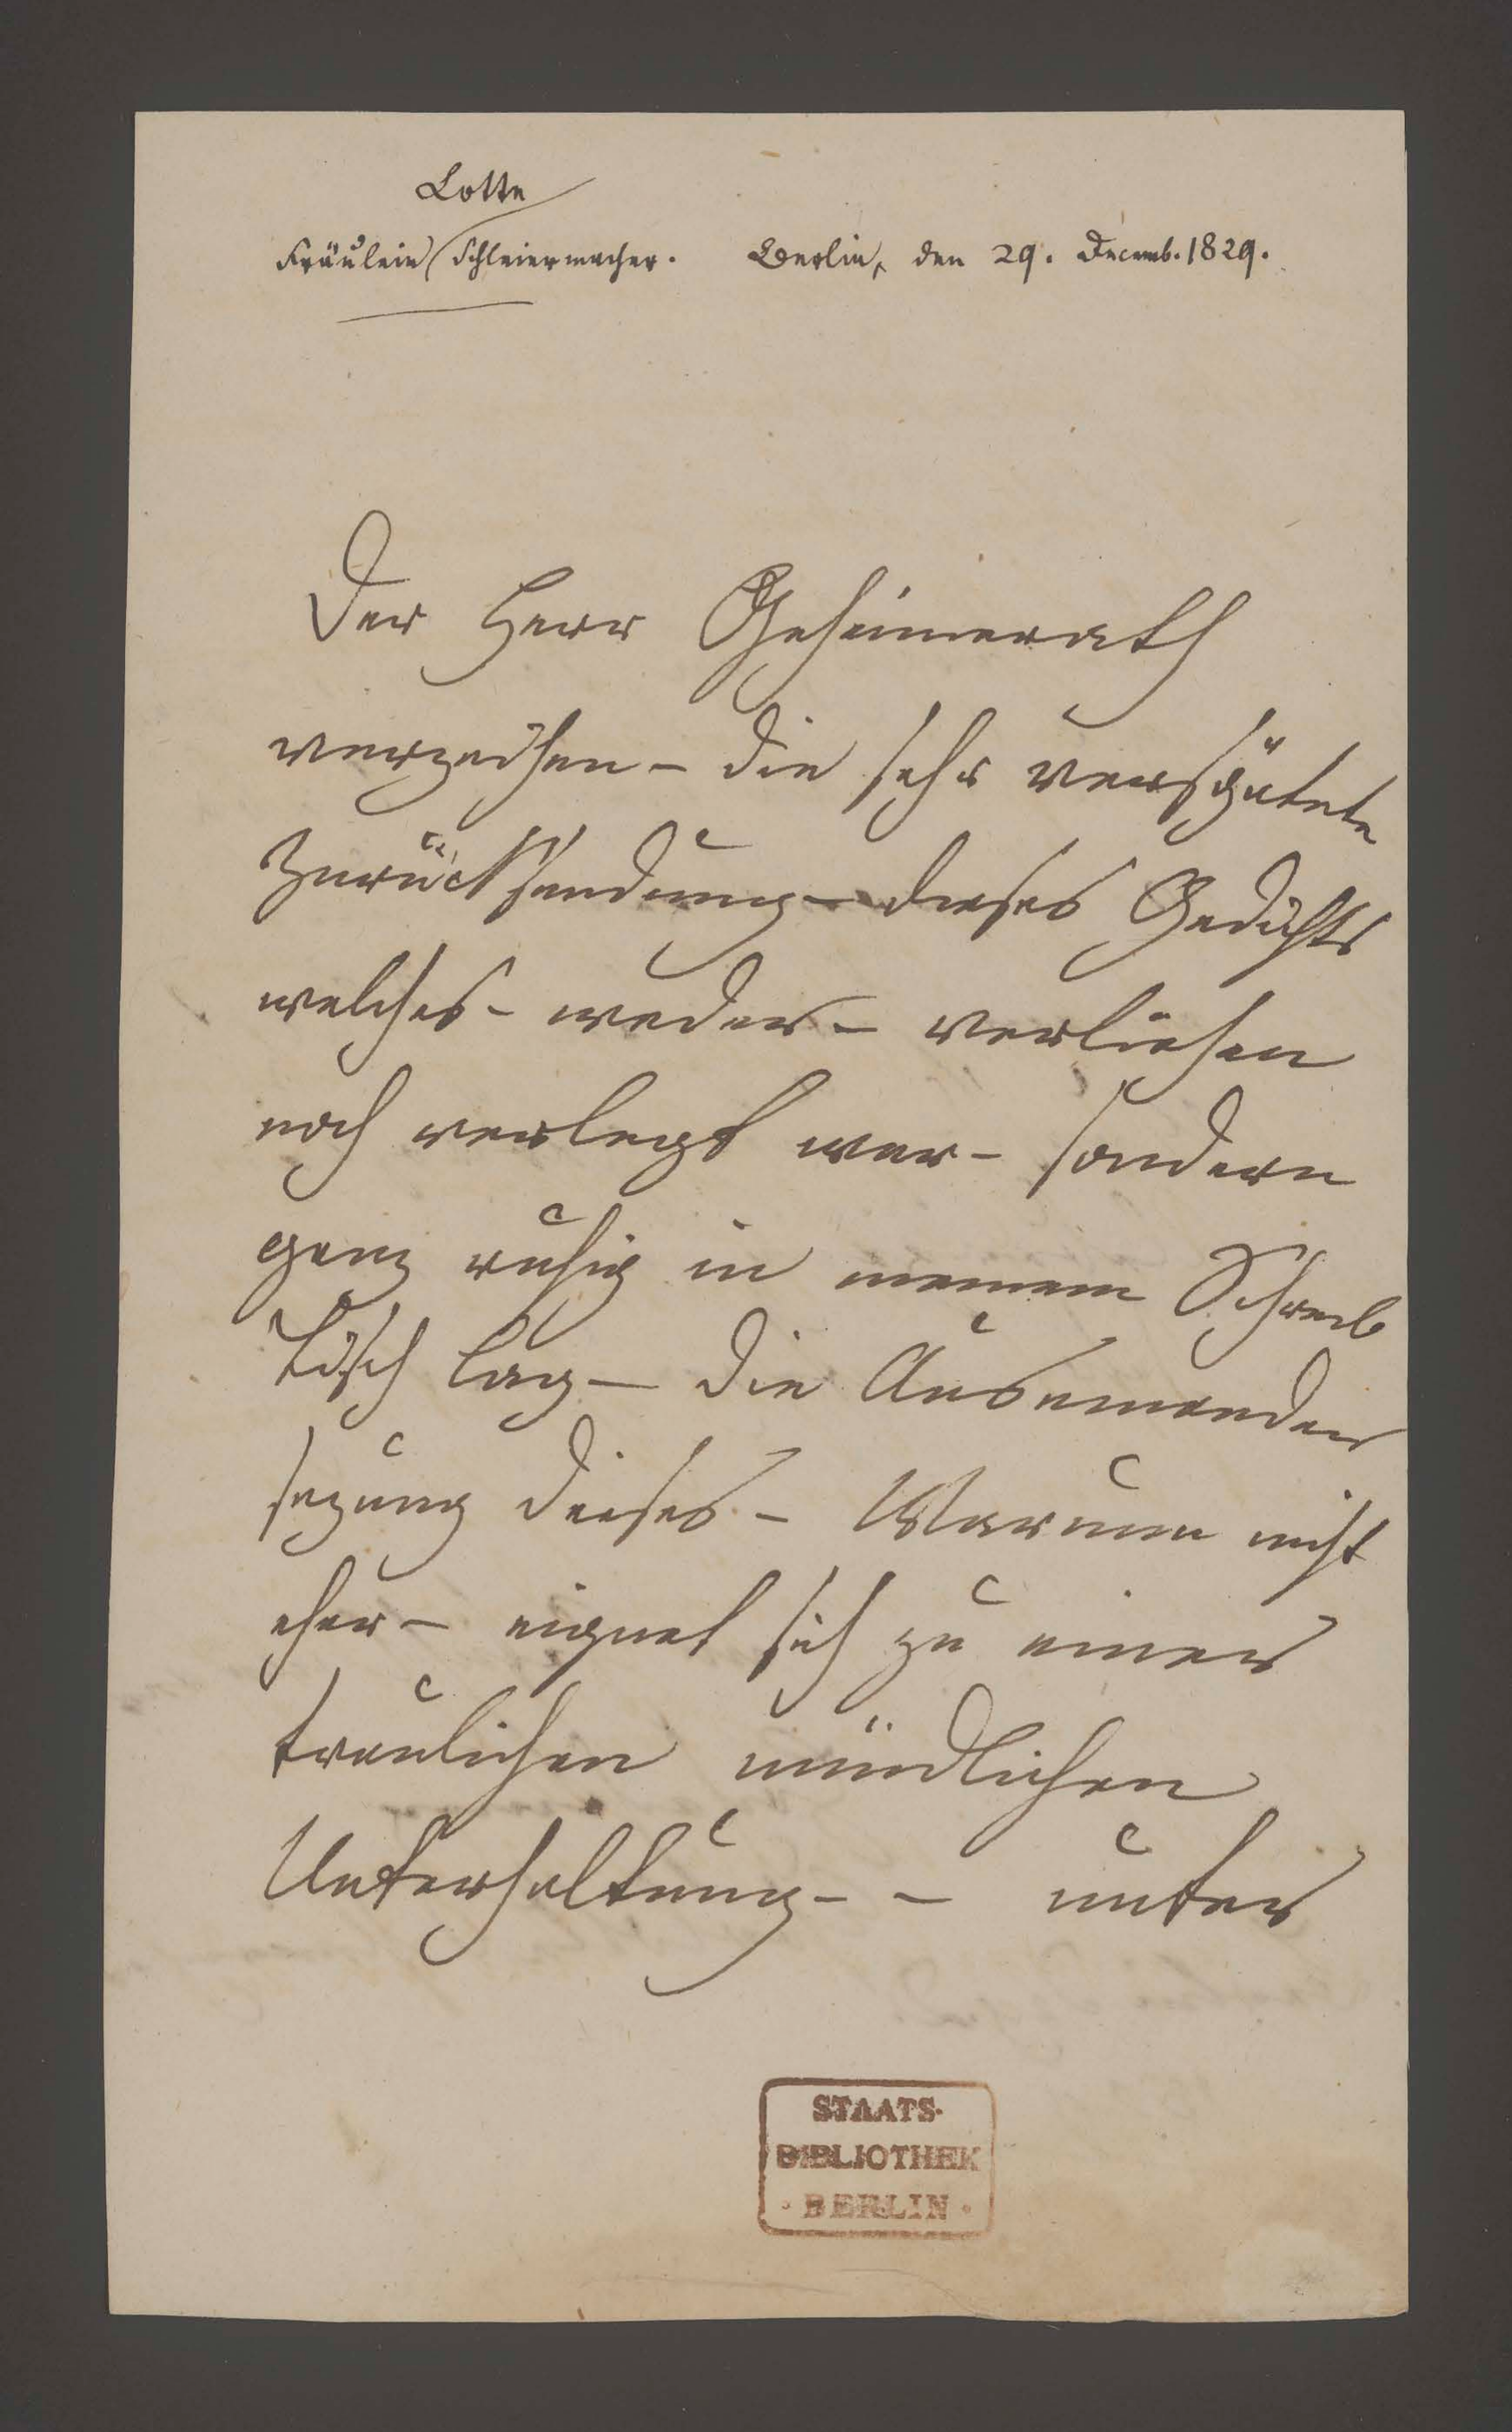 Lotte
Fräulein Schleiermacher. Berlin, den 29. Decemb. 1829.
Der Herr Geheimerath
verzeihen – die sehr verspätete
Zurücksendung – dieses Gedichts
welches – weder – verliehen
noch verlegt war – sondern
ganz ruhig in meinem Schreib
tisch lag – die Auseinander
sezung dieses – Warum nicht
eher – eignet sich zu einer
traulichen mündlichen
Unterhaltung – – unter
STAATS-
BIBLIOTHEK
· BERLIN ·